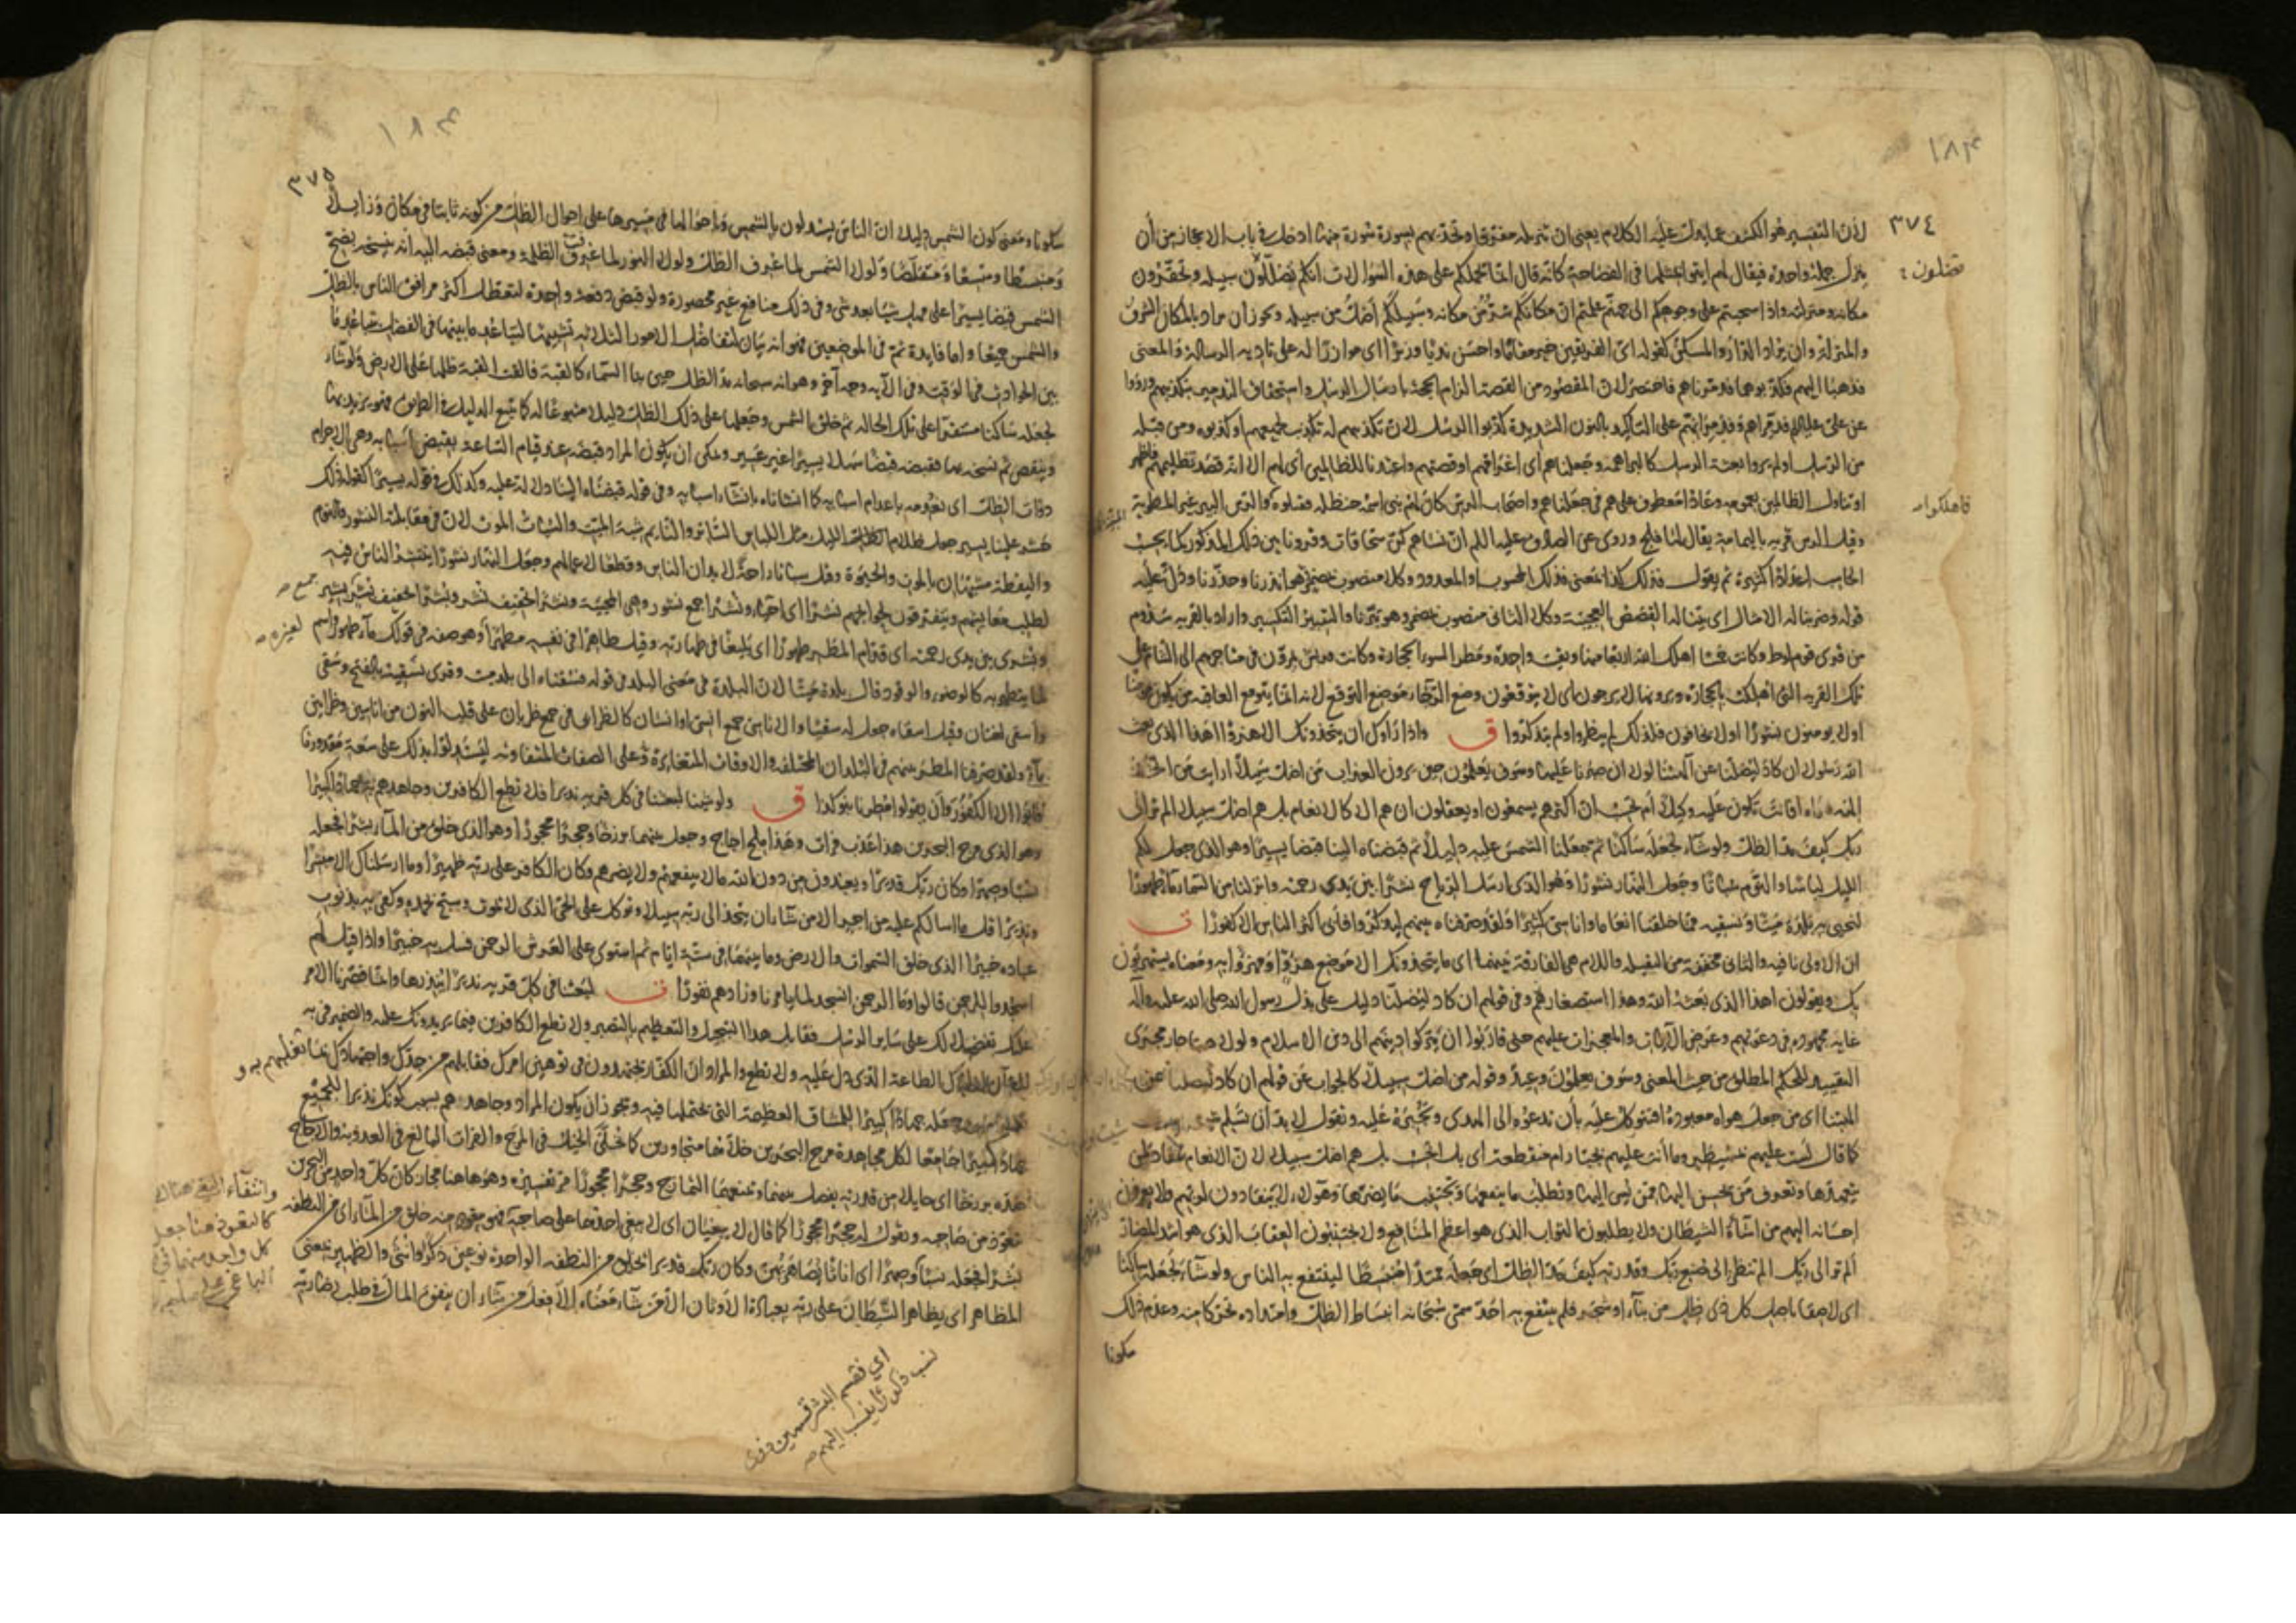 ١٨٣
٣٧٤
لأن التفسير هو الكشف عما يدل عليه الكلام يعني ان تنزيله مفرقا وتحديهم بسورة سورة منها ادخل في باب الاعجاز من أن
تضلون
ينزل جملة واحدة فيقال لهم ايتوا بمثلها في الفصاحة كانه قال انما يحملكم على هذه السؤالات انكم تضللون سبيله وتحقرون
مكانه ومنزلته واذا سحبتم على وجوهكم الى جهنم علمتم ان مكانكم شر من مكانه وسبيلكم اضل من سبيله ويجوز ان يراد بالمكان الشرف
والمنزلة وان يراد الدار والمسكن كقوله اي الفريقين خير مقاما واحسن نديا وزيرا اي موازرا له على تادية الرسالة والمعنى
فذهبا اليهم فكذبوهما فدمرناهم فاختصر لان المقصود من القصة الزام الحجة بارسال الرسل واستحقاق التدمير بتكذيبهم ورووا
عن علي عليه السلام فدمراهم وقرئ فدمرانهم على التاكيد بالنون الشديدة كذبوا الرسل لان تكذيبهم له تكذيب لجميعهم او كذبوه ومن قبله
من الرسل او لم يروا بعثة الرسل كالبراهمة وجعلناهم اي اغراقهم او قصتهم واعتدنا للظالمين اي لهم الا انه قصد تظليمهم فاظهر
او تناول الظالمين بعمومه وعادا معطوف على هم في جعلناهم واصحاب الرس كان لهم نبي اسمه حنظلة فقتلوه والرس البير غير المطوية
فاهلكوا
وقيل الرس قرية باليمامة يقال لها فلج وروي عن الصادق عليه السلام ان نساءهم كن سحاقات وقرونا بين ذلك المذكور كما يحسب
الحاسب اعدادا كثيرة ثم يقول فذلك كذا بمعنى فذلك المحسوب او المعدود وكلا منصوب بمضمر هو انذرنا وحذرنا ودل عليه
قوله وضربنا له الامثال اي بينا له القصص العجيبة وكلا الثاني منصوب بمضمر وهو تبرنا والتتبير التكسير واراد بالقرية سدوم
من قرى قوم لوط وكانت خمسا اهلك الله اربعا منها وبقيت واحدة ومطر السوء الحجارة وكانت قريش يمرون في متاجرهم الى الشام على
تلك القرية التي اهلكت بالحجارة ويرونها لا يرجون اي لا يتوقعون وضع الرجاء موضع التوقع لانه انما يتوقع العاقبة من يكون مؤمنا
او لا يومنون بنشورا او لا يخافون فلذلك لم ينظروا ولم يتذكروا ق واذا راوك ان يتخذونك الا هزوا اهذا الذي بعث
الله رسولا ان كاد ليضلنا عن آلهتنا لولا ان صبرنا عليها وسوف يعلمون حين يرون العذاب من اضل سبيلا ارايت من اتخذ
الهه هواه افانت تكون عليه وكيلا أم تحسب ان اكثرهم يسمعون او يعقلون ان هم الا كالانعام بل هم اضل سبيلا الم تر الى
ربك كيف مد الظل ولو شاء لجعله ساكنا ثم جعلنا الشمس عليه دليلا ثم قبضناه الينا قبضا يسيرا وهو الذي جعل لكم
الليل لباسا والنوم سباتا وجعل النهار نشورا وهو الذي ارسل الرياح نشرا بين يدي رحمته وانزلنا من السماء ماء طهورا
لنحيي به بلدة ميتا ونسقيه مما خلقنا انعاما واناسي كثيرا ولقد صرفناه بينهم ليذكروا فأبى اكثر الناس الا كفورا ق
ان الاولى نافية والثاني مخففة من الثقيلة واللام هي الفارقة بينهما اي ما يتخذونك الا موضع هزو او مهزوا به ومعناه يستهزؤن
بك ويقولون اهذا الذي بعثه الله وهذا استصغار لهم وفي قولهم ان كاد ليضلنا دليل على بذل رسول الله صلى الله عليه وآله
غاية مجهوده في دعوتهم وعرض الآيات والمعجزات عليهم حتى قاربوا ان يتركوا دينهم الى دين الاسلام ولولا هنا جار مجرى
التقييد للحكم المطلق من حيث المعنى وسوف يعلمون وعيد وقوله من اضل سبيلا كالجواب عن قولهم ان كاد ليضلنا عن
الهتنا اي من جعل هواه معبوده افتتوكل عليه بأن تدعوه الى الهدى وتجبره عليه وتقول لا بد أن تسلم
كما قال لست عليهم بمسيطر وما أنت عليهم بجبار ام منقطعة اي بل اتحسب بل هم اضل سبيلا لان الانعام تنقاد لمن
يتعهدها وتعرف من يحسن اليها ممن يسيء اليها وتطلب ما ينفعها وتجتنب ما يضرها وهؤلاء لا ينقادون لربهم ولا يعرفون
احسانه اليهم من اساءة الشيطان ولا يطلبون الثواب الذي هو اعظم المنافع ولا يجتنبون العقاب الذي هو اشد المضار
ألم تر الى ربك الم تنظر الى صنع ربك وقدرته كيف مد الظل اي جعله ممتدا منبسطا لينتفع به الناس ولو شاء لجعله ساكنا
اي لاصقا باصل كل ذي ظل من بناء او شجر فلم ينتفع به احد سمى سبحانه انبساط الظل وامتداده تحركا منه وعدم ذلك
سكونا
١٨٤
٣٧٥
سكونا ومعنى كون الشمس دليلا ان الناس يستدلون بالشمس وباحوالها في مسيرها على احوال الظل من كونه ثابتا في مكان وزايلا
ومنبسطا ومتسقا ومتقلصا ولولا الشمس لما عرف الظل ولولا النور لما عرفت الظلمة ومعنى قبضه اليه انه ينسخه بضح
الشمس قبضا يسيرا على مهل شيئا بعد شيء وفي ذلك منافع غير محصورة ولو قبض دفعة واحدة لتعطل اكثر مرافق الناس بالظل
والشمس جميعا واما فايدة ثم في الموضعين فهو انه بيان لتفاضل الامور الثلاثة تشبيها لتباعد ما بينها في الفضل بتباعد ما
بين الحوادث في الوقت وفي الآية وجه آخر وهو انه سبحانه مد الظل حين بنا السماء كالقبة فالقت القبة ظلها على الارض ولو شاء
لجعله ساكنا مستقرا على تلك الحالة ثم خلق الشمس وجعلها على ذلك الظل دليلا متبوعا له كما يتبع الدليل في الطريق فهو يزيد بها
وينقص ثم نسخه بها فقبضه قبضا سهلا يسيرا غير عسير ويمكن ان يكون المراد قبضه عند قيام الساعة بقبض اسبابه وهي الاجرام
ذوات الظل اي نعدمه باعدام اسبابه كما انشاناه بانشاء اسبابه وفي قوله قبضناه الينا دلالة عليه وكذلك في قوله يسيرا كقوله ذلك
حشر علينا يسير جعل ظلام الليل مثل اللباس الساتر والنايم شبه الميت والسبات الموت لان في مقابلته النشور والنوم
واليقظة مشبهان بالموت والحيوة وقيل سباتا راحة لابدان الناس وقطعا لاعمالهم وجعل النهار نشورا ينتشر الناس فيه
لطلب معايشهم ويتفرقون لحوايجهم نشرا اي احياء ونشرا جمع نشور وهي المحيية ونشرا تخفيف نشر وبشرا تخفيف بشر جمع بشير
وبشرى بين يدي رحمته اي قدام المطر طهورا اي بليغا في طهارته وقيل طاهرا في نفسه مطهرا لغيره وهو صفة في قولك ماء طهور واسم
لما يتطهر به كالوضوء والوقود قال بلدة ميتا لان البلدة في معنى البلد في قوله فسقناه الى بلد ميت وقرئ نسقيه بالفتح وسقى
وأسقى لغتان وقيل اسقاه جعل له سقيا والاناسي جمع انسي او انسان كالظرابي في جمع ظربان على قلب النون من اناسين وظرابين
ياء ولقد صرفنا المطر بينهم في البلدان المختلفة والاوقات المتغايرة وعلى الصفات المتفاوتة ليستدلوا بذلك على سعة مقدورنا
فابوا الا الكفور وان يقولوا مطرنا بنوء كذا ق ولو شئنا لبعثنا في كل قرية نذيرا فلا تطع الكافرين وجاهدهم به جهادا كبيرا
وهو الذي مرج البحرين هذا عذب فرات وهذا ملح اجاج وجعل بينهما برزخا وحجرا محجورا وهو الذي خلق من الماء بشرا فجعله
نسبا وصهرا وكان ربك قديرا ويعبدون من دون الله ما لا ينفعهم ولا يضرهم وكان الكافر على ربه ظهيرا وما ارسلناك الا مبشرا
ونذيرا قل ما اسالكم عليه من اجر الا من شاء ان يتخذ الى ربه سبيلا وتوكل على الحي الذي لا يموت وسبح بحمده وكفى به بذنوب
عباده خبيرا الذي خلق السموات والارض وما بينهما في ستة ايام ثم استوى على العرش الرحمن فسل به خبيرا واذا قيل لهم
اسجدوا للرحمن قالوا وما الرحمن انسجد لما يامرنا وزادهم نفورا ق لبعثنا في كل قرية نذيرا ينذرها وانما قصرنا الامر
عليك تفضيلا لك على ساير الرسل فقابل هذا التبجيل والتعظيم بالتصبر ولا تطع الكافرين فيما يريدونك عليه والضمير في به
للقرآن او لترك الطاعة الذي دل عليه ولا تطع والمراد ان الكفار يجتهدون في توهين امرك فقابلهم من جدك واجتهادك بما تغلبهم به و
جعله جهادا كبيرا للمشاق العظيمة التي يحتملها فيه ويجوز ان يكون المراد وجاهدهم بسبب كونك نذيرا للجميع
جهادا كبيرا جامعا لكل مجاهدة مرج البحرين خلاهما متجاورين كما تخلى الخيل في المرج والفرات البالغ في العذوبة والاجاج
ضده برزخا اي حايلا من قدرته يفصل بينهما ويمنعهما التمازج وحجرا محجورا مر تفسيره وهو هاهنا مجاز كأن كل واحد من البحرين
تعوذ من صاحبه ويقول له حجرا محجورا كما قال لا يبغيان اي لا يبغي احدهما على صاحبه فهو يعوذ منه خلق من الماء اي من النطفة
بشرا فجعله نسبا وصهرا اي اناثا يصاهر بهن وكان ربك قديرا يخلق من النطفة الواحدة نوعين ذكرا وانثى والظهير بمعنى
المظاهر اي يظاهر الشيطان على ربه بعبادة الاوثان الا من شاء معناه الا فعل من شاء ان ينفق المال في طلب رضا ربه
وانتفاء البغي هناك
كالتعوذ هنا جعل
كل واحد منهما في
اي قسم البشر قسمين ذوي
نسب ذكورا ينسب اليهم